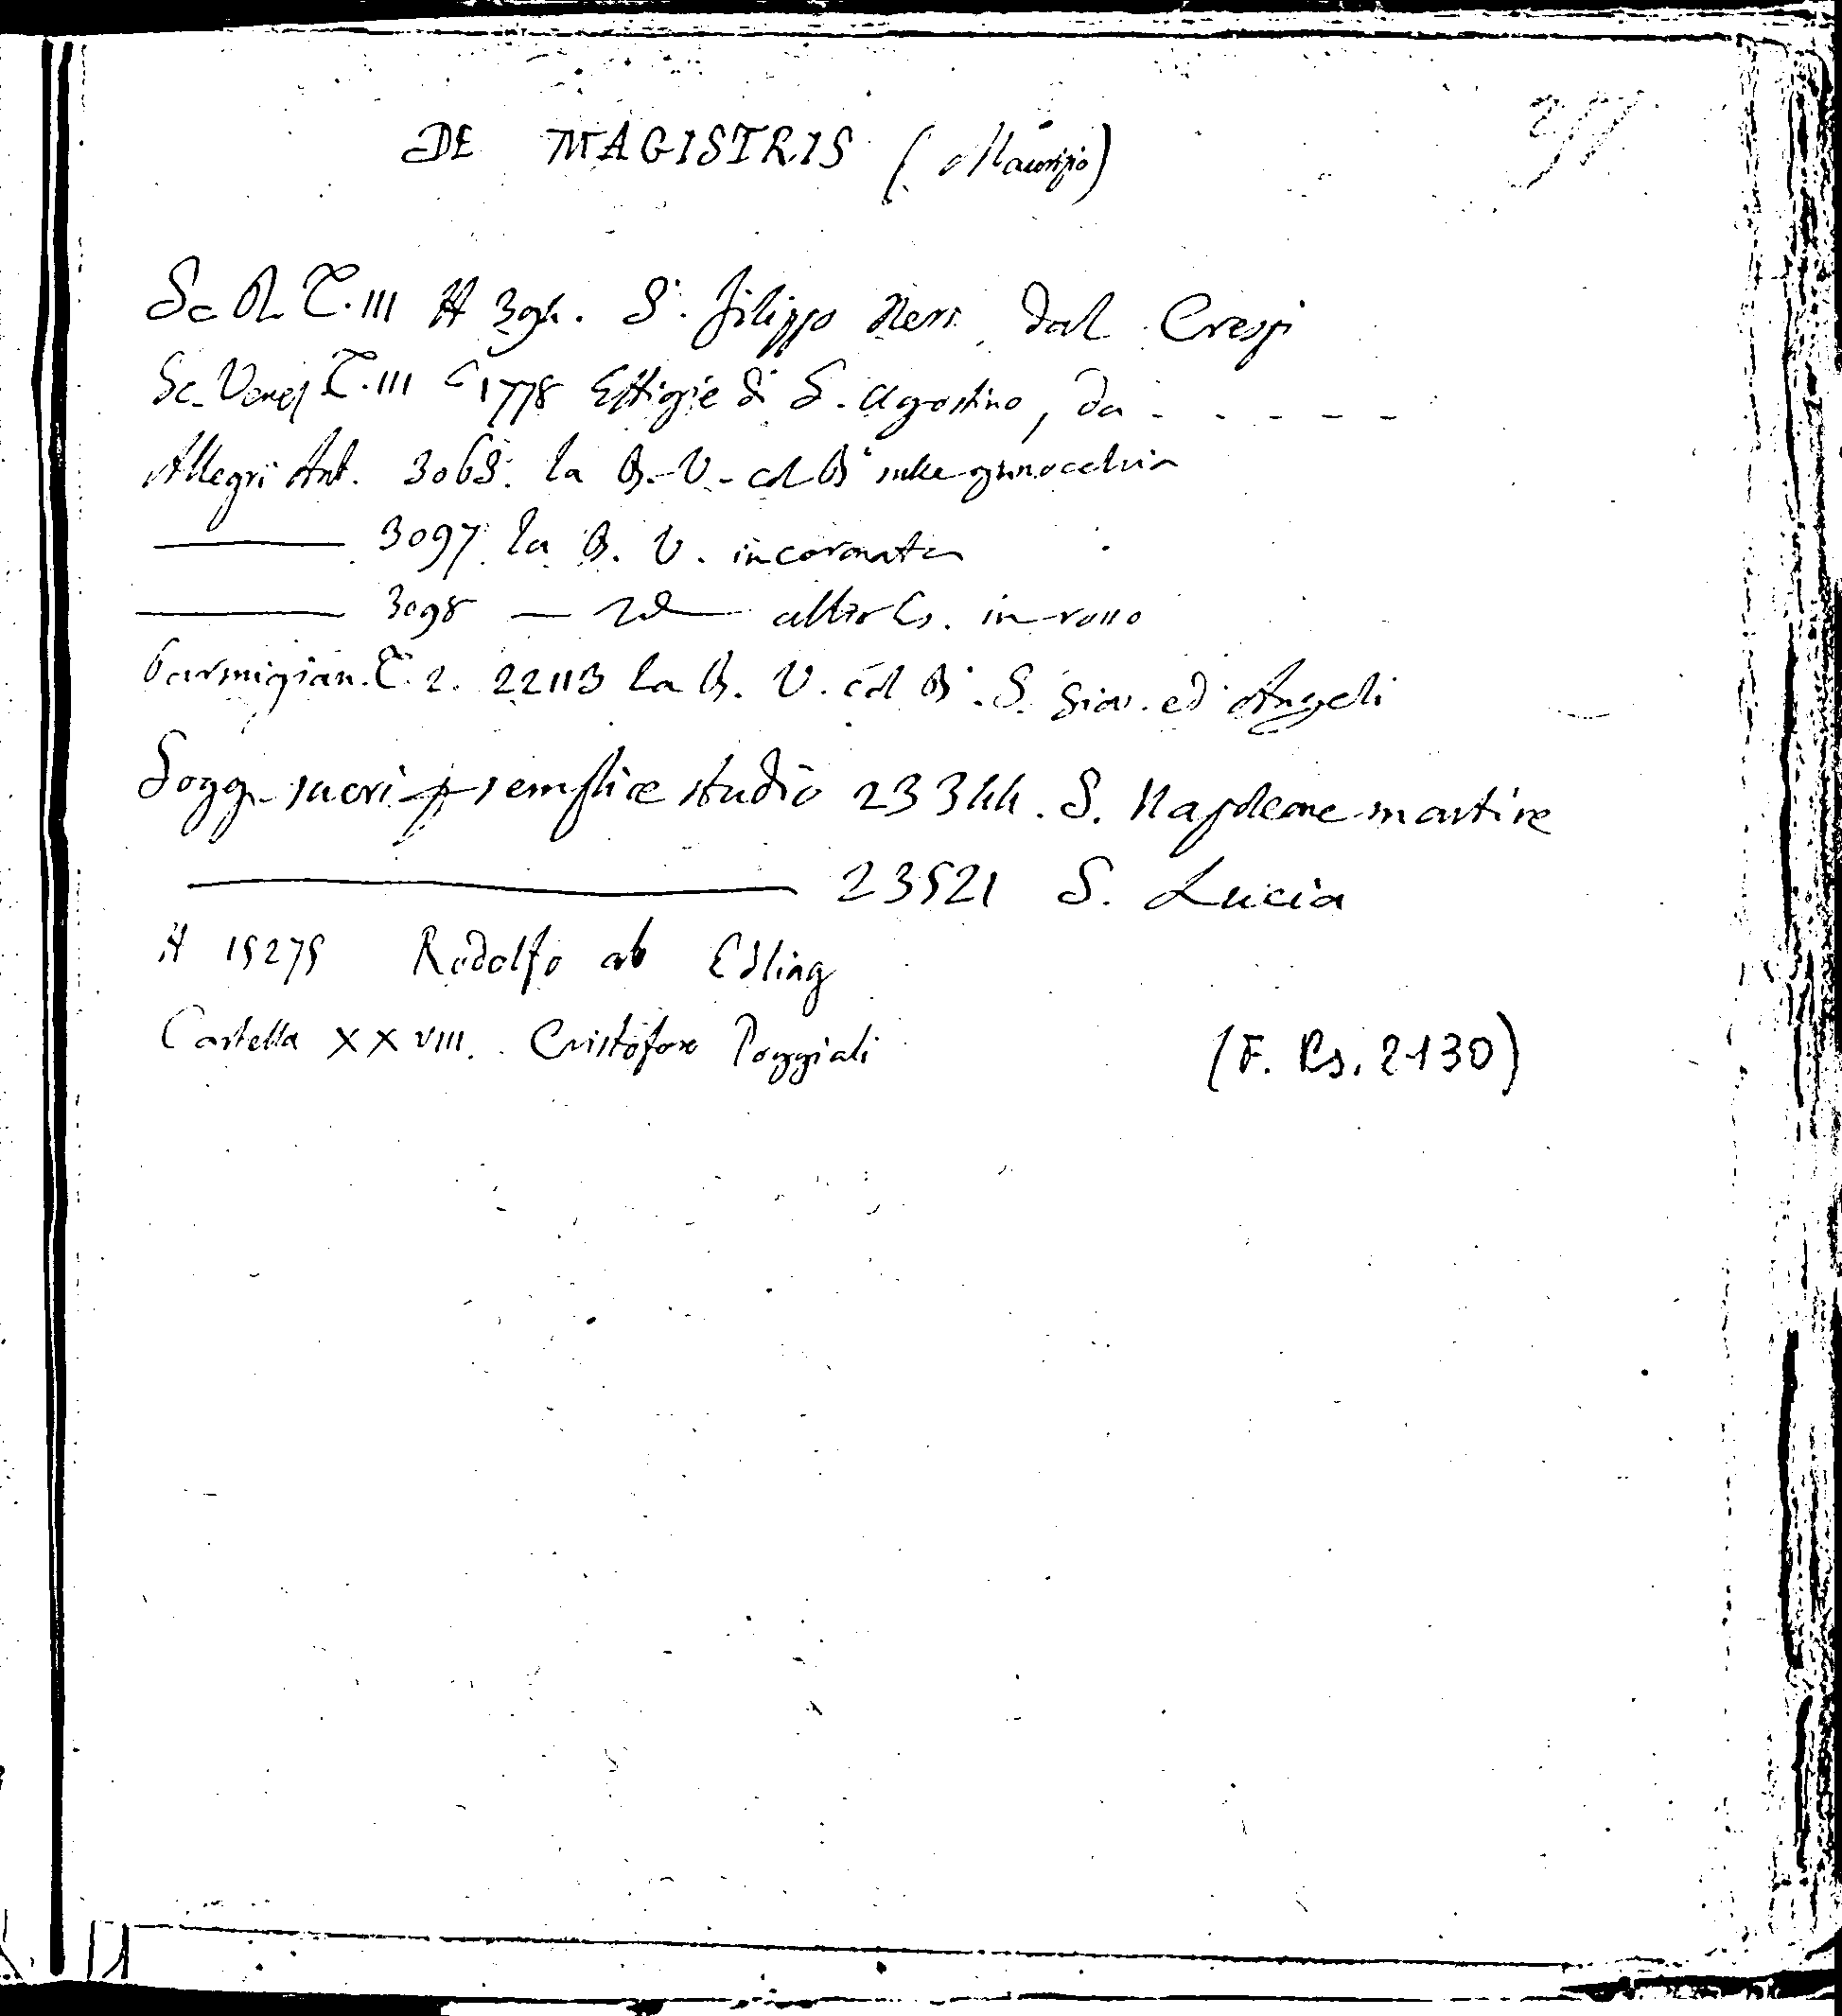 DE MAGISTRIS (Maurizio)
Sc. Bol. T. III # 394. S. Filippo Neri, dal Crespi
Sc. Venez T. III C 1778 Effigie di S. Agostino, da - - - - -
Allegri Ant. 3063. la B. V. col B° sulle ginocchia
——— 3097. la B. V. incoronata
——— 3098 — Id — altro Es. in rosso
Parmigian. T. 2. 22113 la B. V. col B°. S. Giov. ed Angeli
Sogg. sacri p semplice studio 23344. S. Napoleone martire
——— 23521 S. Lucia
# 15275 Rodolfo ab Edling
Cartella XXVIII. Cristoforo Poggiali
(F. Ps. 2130)